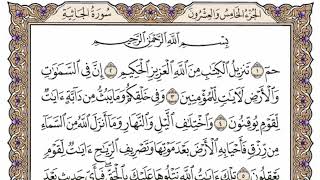 سُورَةُ الجَاثِيَةِ
الجُزْءُ الخَامِسُ وَالعِشْرُونَ
بِسْمِ ٱللَّهِ ٱلرَّحْمَٰنِ ٱلرَّحِيمِ
حمٓ ١ تَنزِيلُ ٱلْكِتَٰبِ مِنَ ٱللَّهِ ٱلْعَزِيزِ ٱلْحَكِيمِ ٢ إِنَّ فِى ٱلسَّمَٰوَٰتِ
وَٱلْأَرْضِ لَءَايَٰتٍ لِّلْمُؤْمِنِينَ ٣ وَفِى خَلْقِكُمْ وَمَا يَبُثُّ مِن دَآبَّةٍ ءَايَٰتٌ
لِّقَوْمٍ يُوقِنُونَ ٤ وَٱخْتِلَٰفِ ٱلَّيْلِ وَٱلنَّهَارِ وَمَآ أَنزَلَ ٱللَّهُ مِنَ ٱلسَّمَآءِ
مِن رِّزْقٍ فَأَحْيَا بِهِ ٱلْأَرْضَ بَعْدَ مَوْتِهَا وَتَصْرِيفِ ٱلرِّيَٰحِ ءَايَٰتٌ لِّقَوْمٍ
يَعْقِلُونَ ٥ تِلْكَ ءَايَٰتُ ٱللَّهِ نَتْلُوهَا عَلَيْكَ بِٱلْحَقِّ فَبِأَىِّ حَدِيثٍۭ بَعْدَ